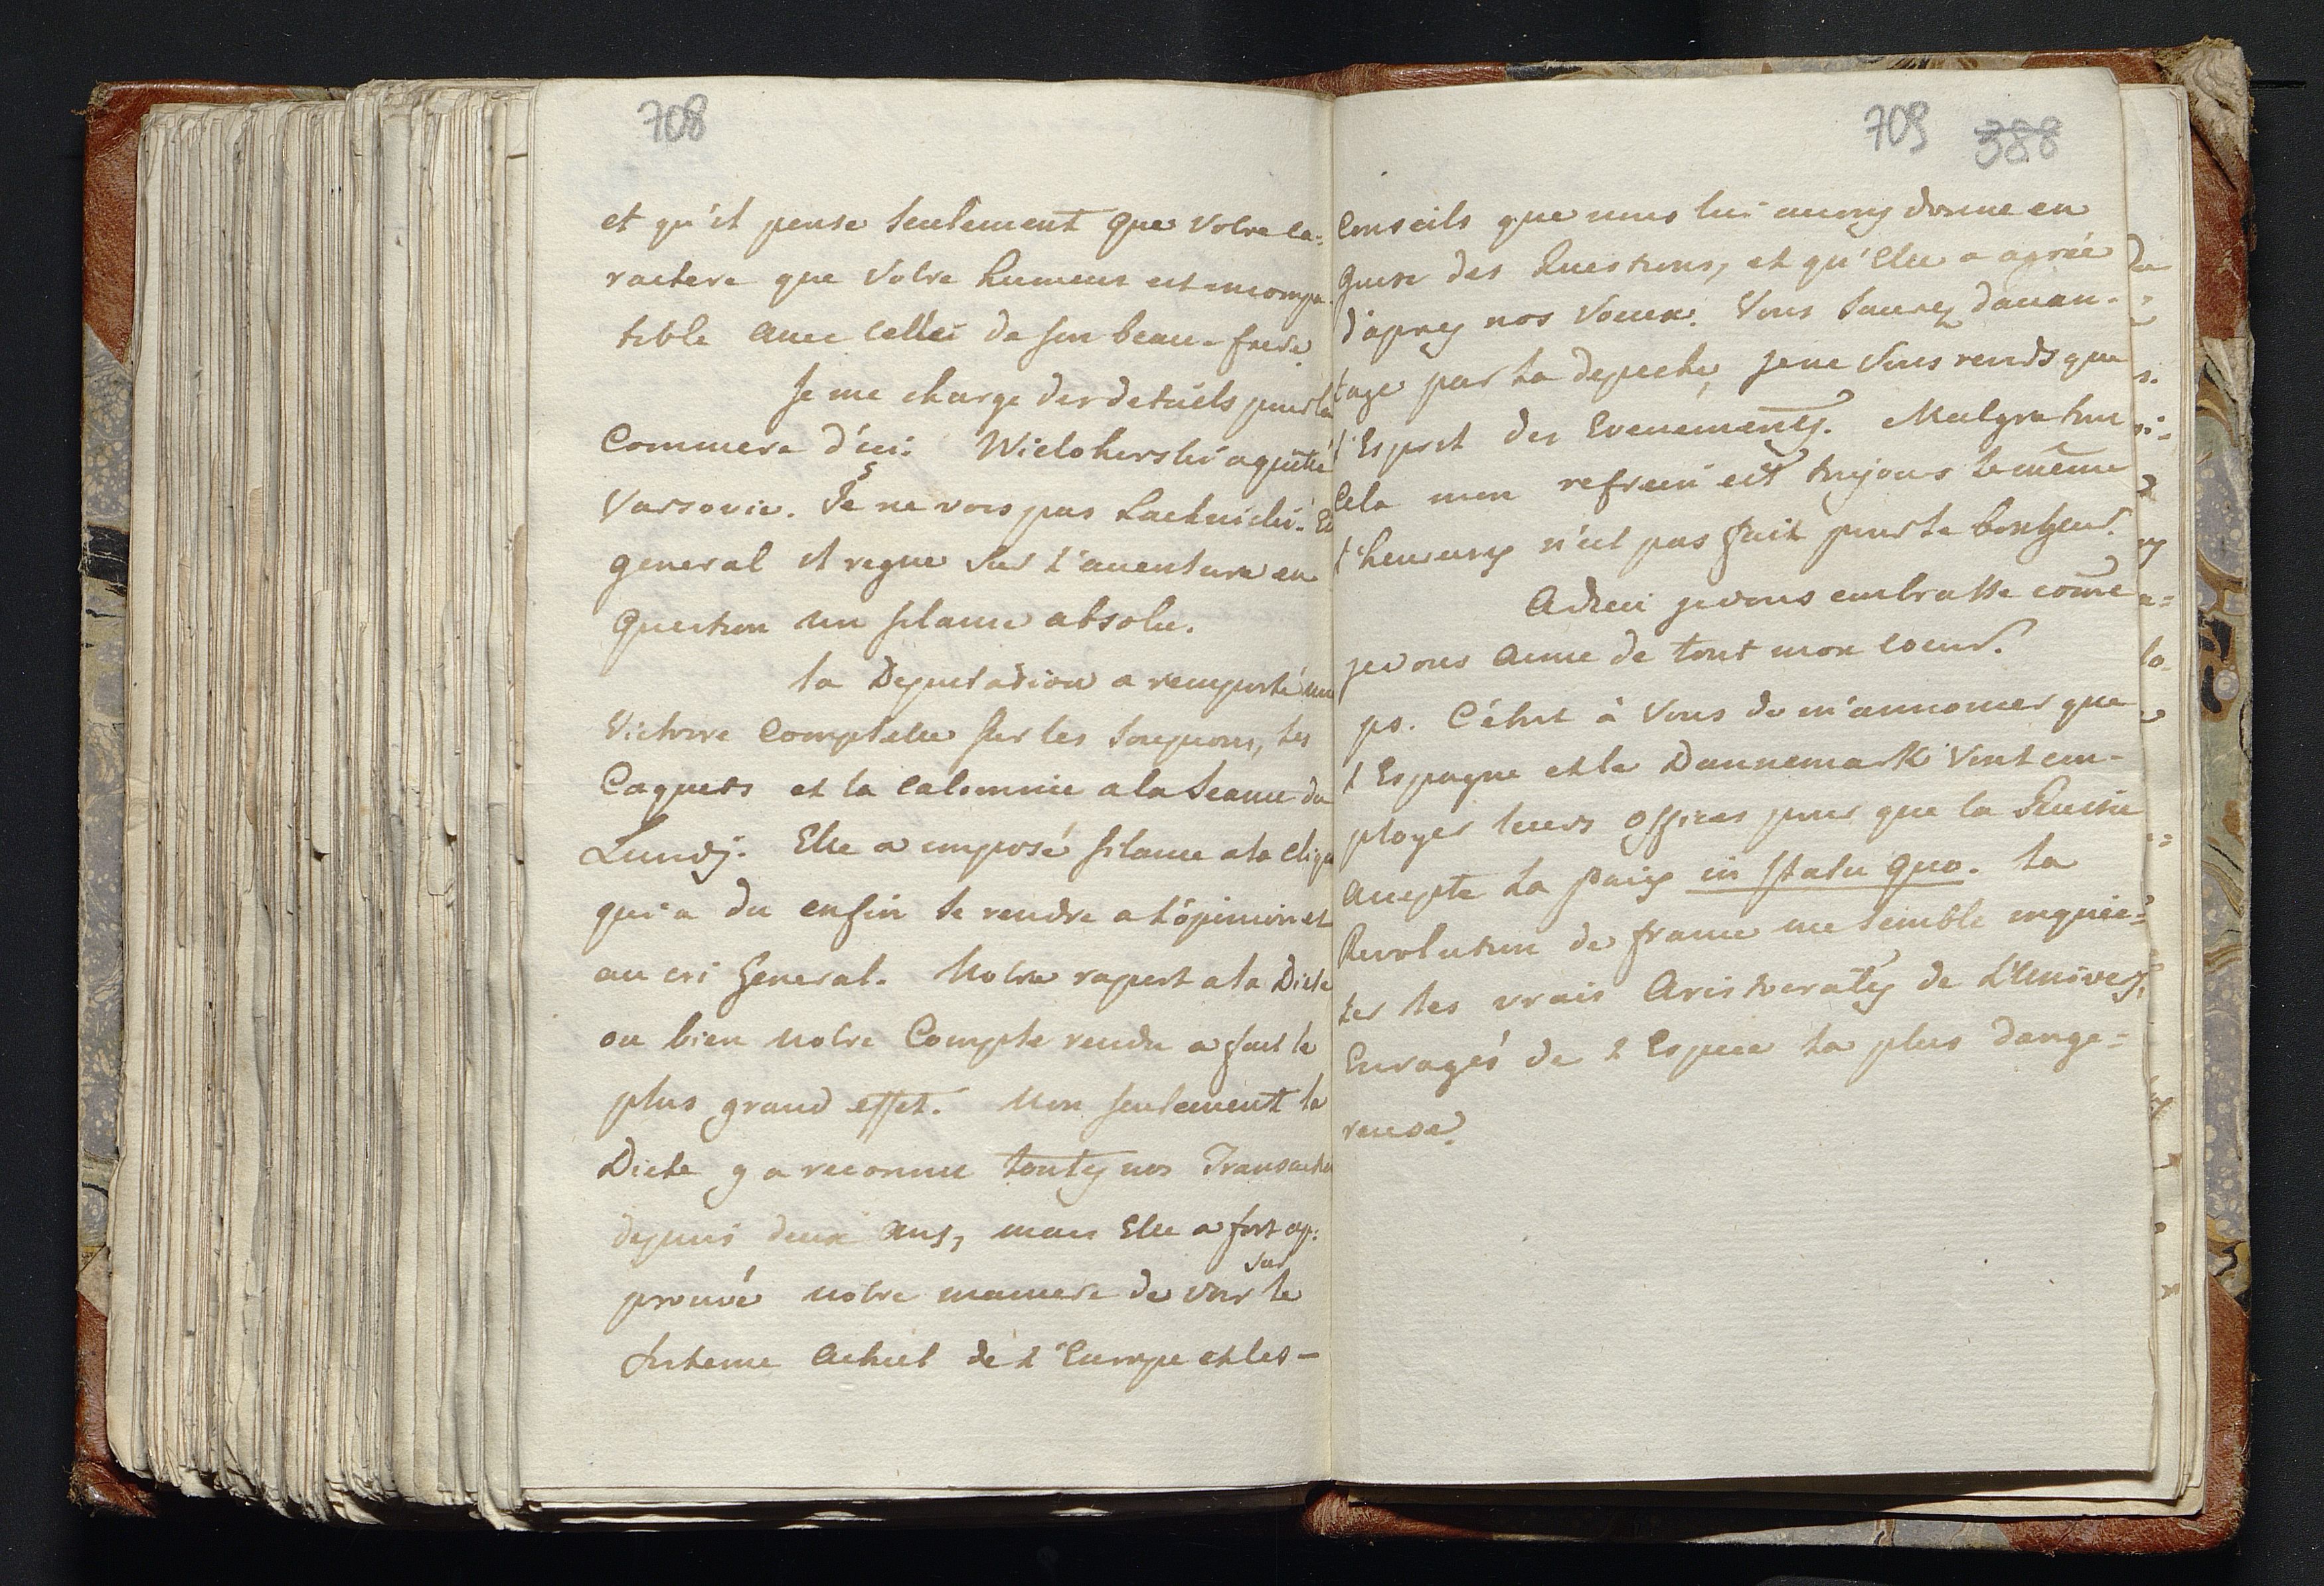 708
et qu'il pense seulement que votre ca=
ractere que votre humeur est incompa-
tible avec celle de son beau-frere.
Je me charge der details pour la
Commere d'ici. Wielohorski a quitté
Varsovie. Je ne vois pas Lachnicki. En
general il regne sur l'aventure en
question un silence absolu.
la Deputation a remporté une
Victoire complette sur les soupçons, les
Caquets et la calomnie a la seance du
Lundj. Elle a imposé silence a la clique
qui a du enfin se rendre a l'opinion et
au cri general. Notre raport a la Diete
ou bien notre Compte rendu a fait le
plus grand effet. Non seulement la
Diete y a reconnu toutes nos Transactio
depuis deux ans, mais Elle a fort ap:
prouvé notre maniere de voir sur le
sisteme actuel de l'Europe et les-
709 388
Conseils que nous lui avons donné en
guise des Questions, et qu'Elle a agréé
d'apres nos voeux. Vous saurez davan-
tage par la depeche, je ne vous rends que
l'Esprit des Evenements. Malgré tout
cela mon refrein est toujours le même
l'heureux n'est pas fait pour le bonheur.
Adieu je vous embrasse comme
je vous aime de tout mon coeur.
ps. C'étoit à vous de m'annoncer que
l'Espagne et le Dannemark vont em-
ployer leurs offices pour que la Russie
accepte la paix in statu quo. la
Revolution de france me semble inquie=
ter les vrais Aristocrates de L'Univers,
Enragés de l'Espece la plus dange=
reuse.